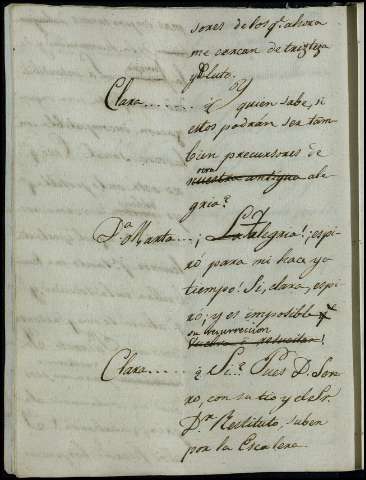 sores de los q.e ahora
me cercan de tristeza
y luto.
Clara....... ¿Y quien sabe, si
estos podràn ser tam-
bien precursores de
otra
nuestra antigua ale-
gria?
D.a Marta... ¡La alegria! ¡espi-
ró para mi hace ya
tiempo! Si, Clara, espi-
ró; y es imposible
su resurreccion
!
Clara....... ¿Si? Pues D.
con su tio y el Sr.
D.n Restituto, suben
por la Escalera.